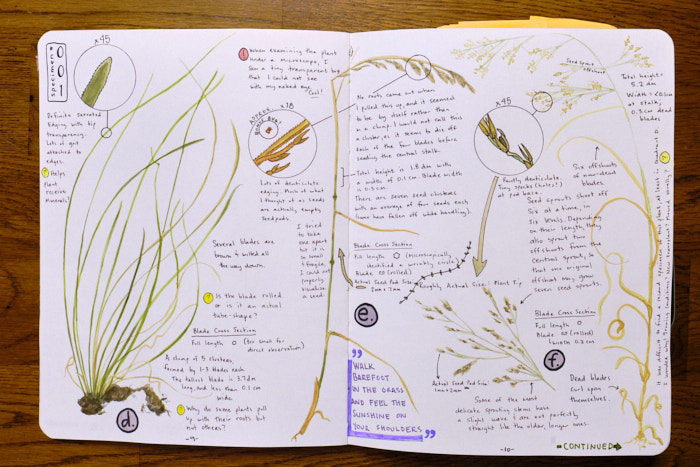 specimen#
001
x45
Definite serrated
edging with tip
transparency.
Lots of grit
attached to
edges.
? Helps
Plant
receive
Minerals?
! When examining the plant
under a microscope, I
saw a tiny transparent bug
that I could not see
with my naked eye.
Cool!
Approx.
x18
Lots of denticulate
edging. Much of what
I thought of as seeds
are actually empty
seedpods.
I tried
to take
one apart
but it is
so small
& fragile,
I could not
properly
visualize
a seed.
Several blades are
brown & wilted all
the way down.
? Is the blade rolled
or is it an actual
tube-shape?
Blade Cross Section
Full length O (too small for
direct observation)
A clump of 5 clusters,
formed by 1-3 blades each.
The tallest blade is 3.7dm
long, and less than 0.1cm
wide.
? Why do some plants pull
up with their roots but
not others?
d.
-9-
No roots came out when
I pulled this up, and it seemed
to be by itself rather than
in a clump. I would not call this
a cluster, as it seems to die off
each of the four blades before
seeding the central stalk.
Total height is 1.8dm with
a width of 0.1cm. Blade width
is 0.3cm.
There are seven seed clusters
with an average of four seeds each
(some have fallen off while handling).
Blade Cross Section
Full length O (Microscopically,
identified a wrinkly circle)
Blade (rolled)
Actual Seed Pod Size
1mm x 7mm
e.
"WALK
BAREFOOT
IN THE GRASS
AND FEEL THE
SUNSHINE ON
YOUR SHOULDERS"
Seed Sprout
offshoot
x45
Faintly denticulate.
Tiny specks (holes?)
at pod base.
Roughly Actual Size: Plant Tip
Actual Seed Pod Size
Some of the most
delicate sprouting stems have
a slight wave & are not perfectly
straight like the older, longer ones.
Total height=
5.2 dm
Width = <0.1cm
at stalk;
0.3cm dead
blades
Six offshoots
of now-dead
blades.
Seed sprouts shoot off
six at a time, in
six levels. Depending
on their length, they
also sprout two
offshoots from the
central sprout, so
that one original
offshoot may grow
seven seed sprouts.
Blade Cross Section
Full length O
Blade (rolled)
Width 0.2cm
f.
Dead blades
curl upon
themselves.
It was difficult to find a second specimen of this plant, at least in Quadrant D.
I wonder why? Growing conditions? Non Ecosystem? Mowed Recently? ?
-CONTINUED→
-10-